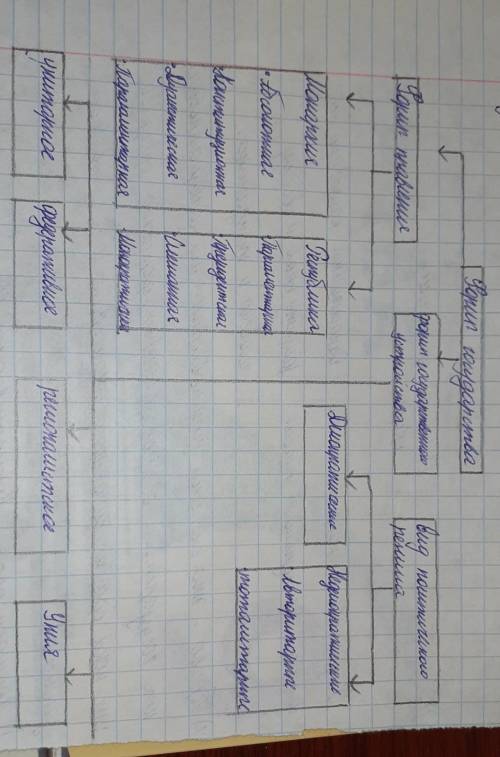 Форма государства
Форма правления
форма государственного
устройства
вид политического
режима
Монархия
Абсолютная
Конституционная
Дуалистическая
Парламентарная
Республика
Парламентарная
Президентская
Смешанная
Демократический
Недемократический
Авторитарный
тоталитарный
унитарное
федеративное
Уния